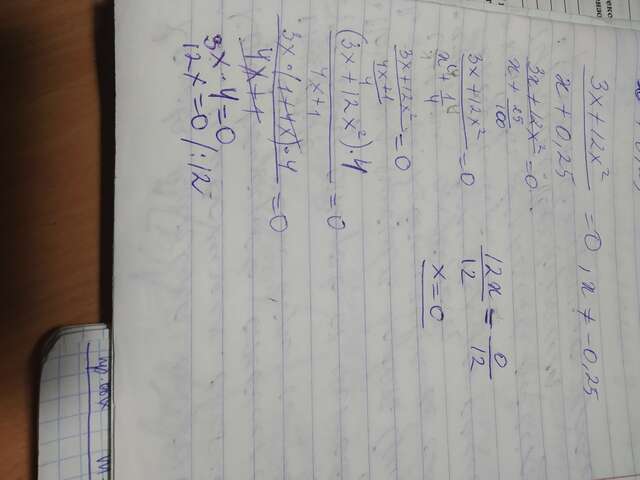 3x+12x²/x+0,25 = 0, x ≠ -0,25
3x+12x²/x+25/100 = 0
3x+12x²/x+1/4 = 0
3x+12x²/4x+1/4 = 0
(3x+12x²)·4/4x+1 = 0
3x·(1+4x)·4/4x+1 = 0
3x·4=0
12x=0/:12
12x/12 = 0/12
x=0